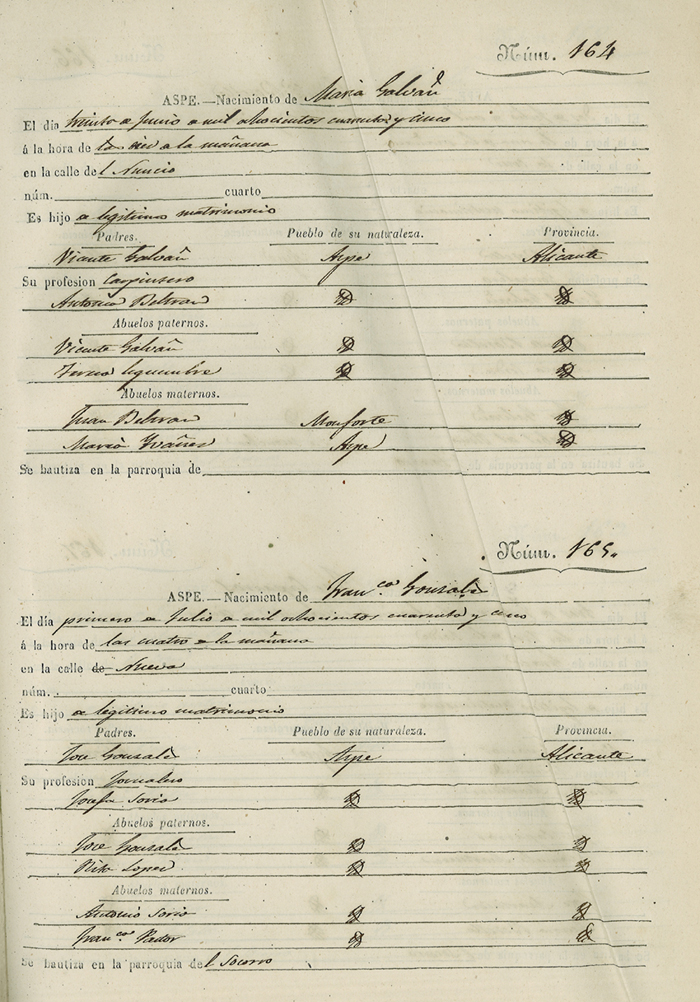 Núm. 164
ASPE.—Nacimiento de Maria Galvañ
El día treinta de Junio de mil ochocientos cuarenta y cinco
á la hora de las diez de la mañana
en la calle del Nuncio
núm. cuarto
Es hijo de legitimo matrimonio
Padres. Pueblo de su naturaleza. Provincia.
Vicente Galvañ Aspe Alicante
Su profesion Carpintero
Antonia Beltran
Abuelos paternos.
Vicente Galvañ
Teresa
Abuelos maternos.
Juan Beltran Monforte
Maria Ybáñez Aspe
Se bautiza en la parroquia de
Núm. 165.
ASPE.—Nacimiento de Franco. Gonzalez
El día primero de Julio de mil ochocientos cuarenta y cinco
á la hora de las cuatro de la mañana
en la calle de Nueva
núm. cuarto
Es hijo de legitimo matrimonio
Padres. Pueblo de su naturaleza. Provincia.
Jose Gonzalez Aspe Alicante
Su profesion Jornalero
Josefa Soria
Abuelos paternos.
Jose Gonzalez
Rita Lopez
Abuelos maternos.
Antonio Soria
Franca. Pastor
Se bautiza en la parroquia del Socorro